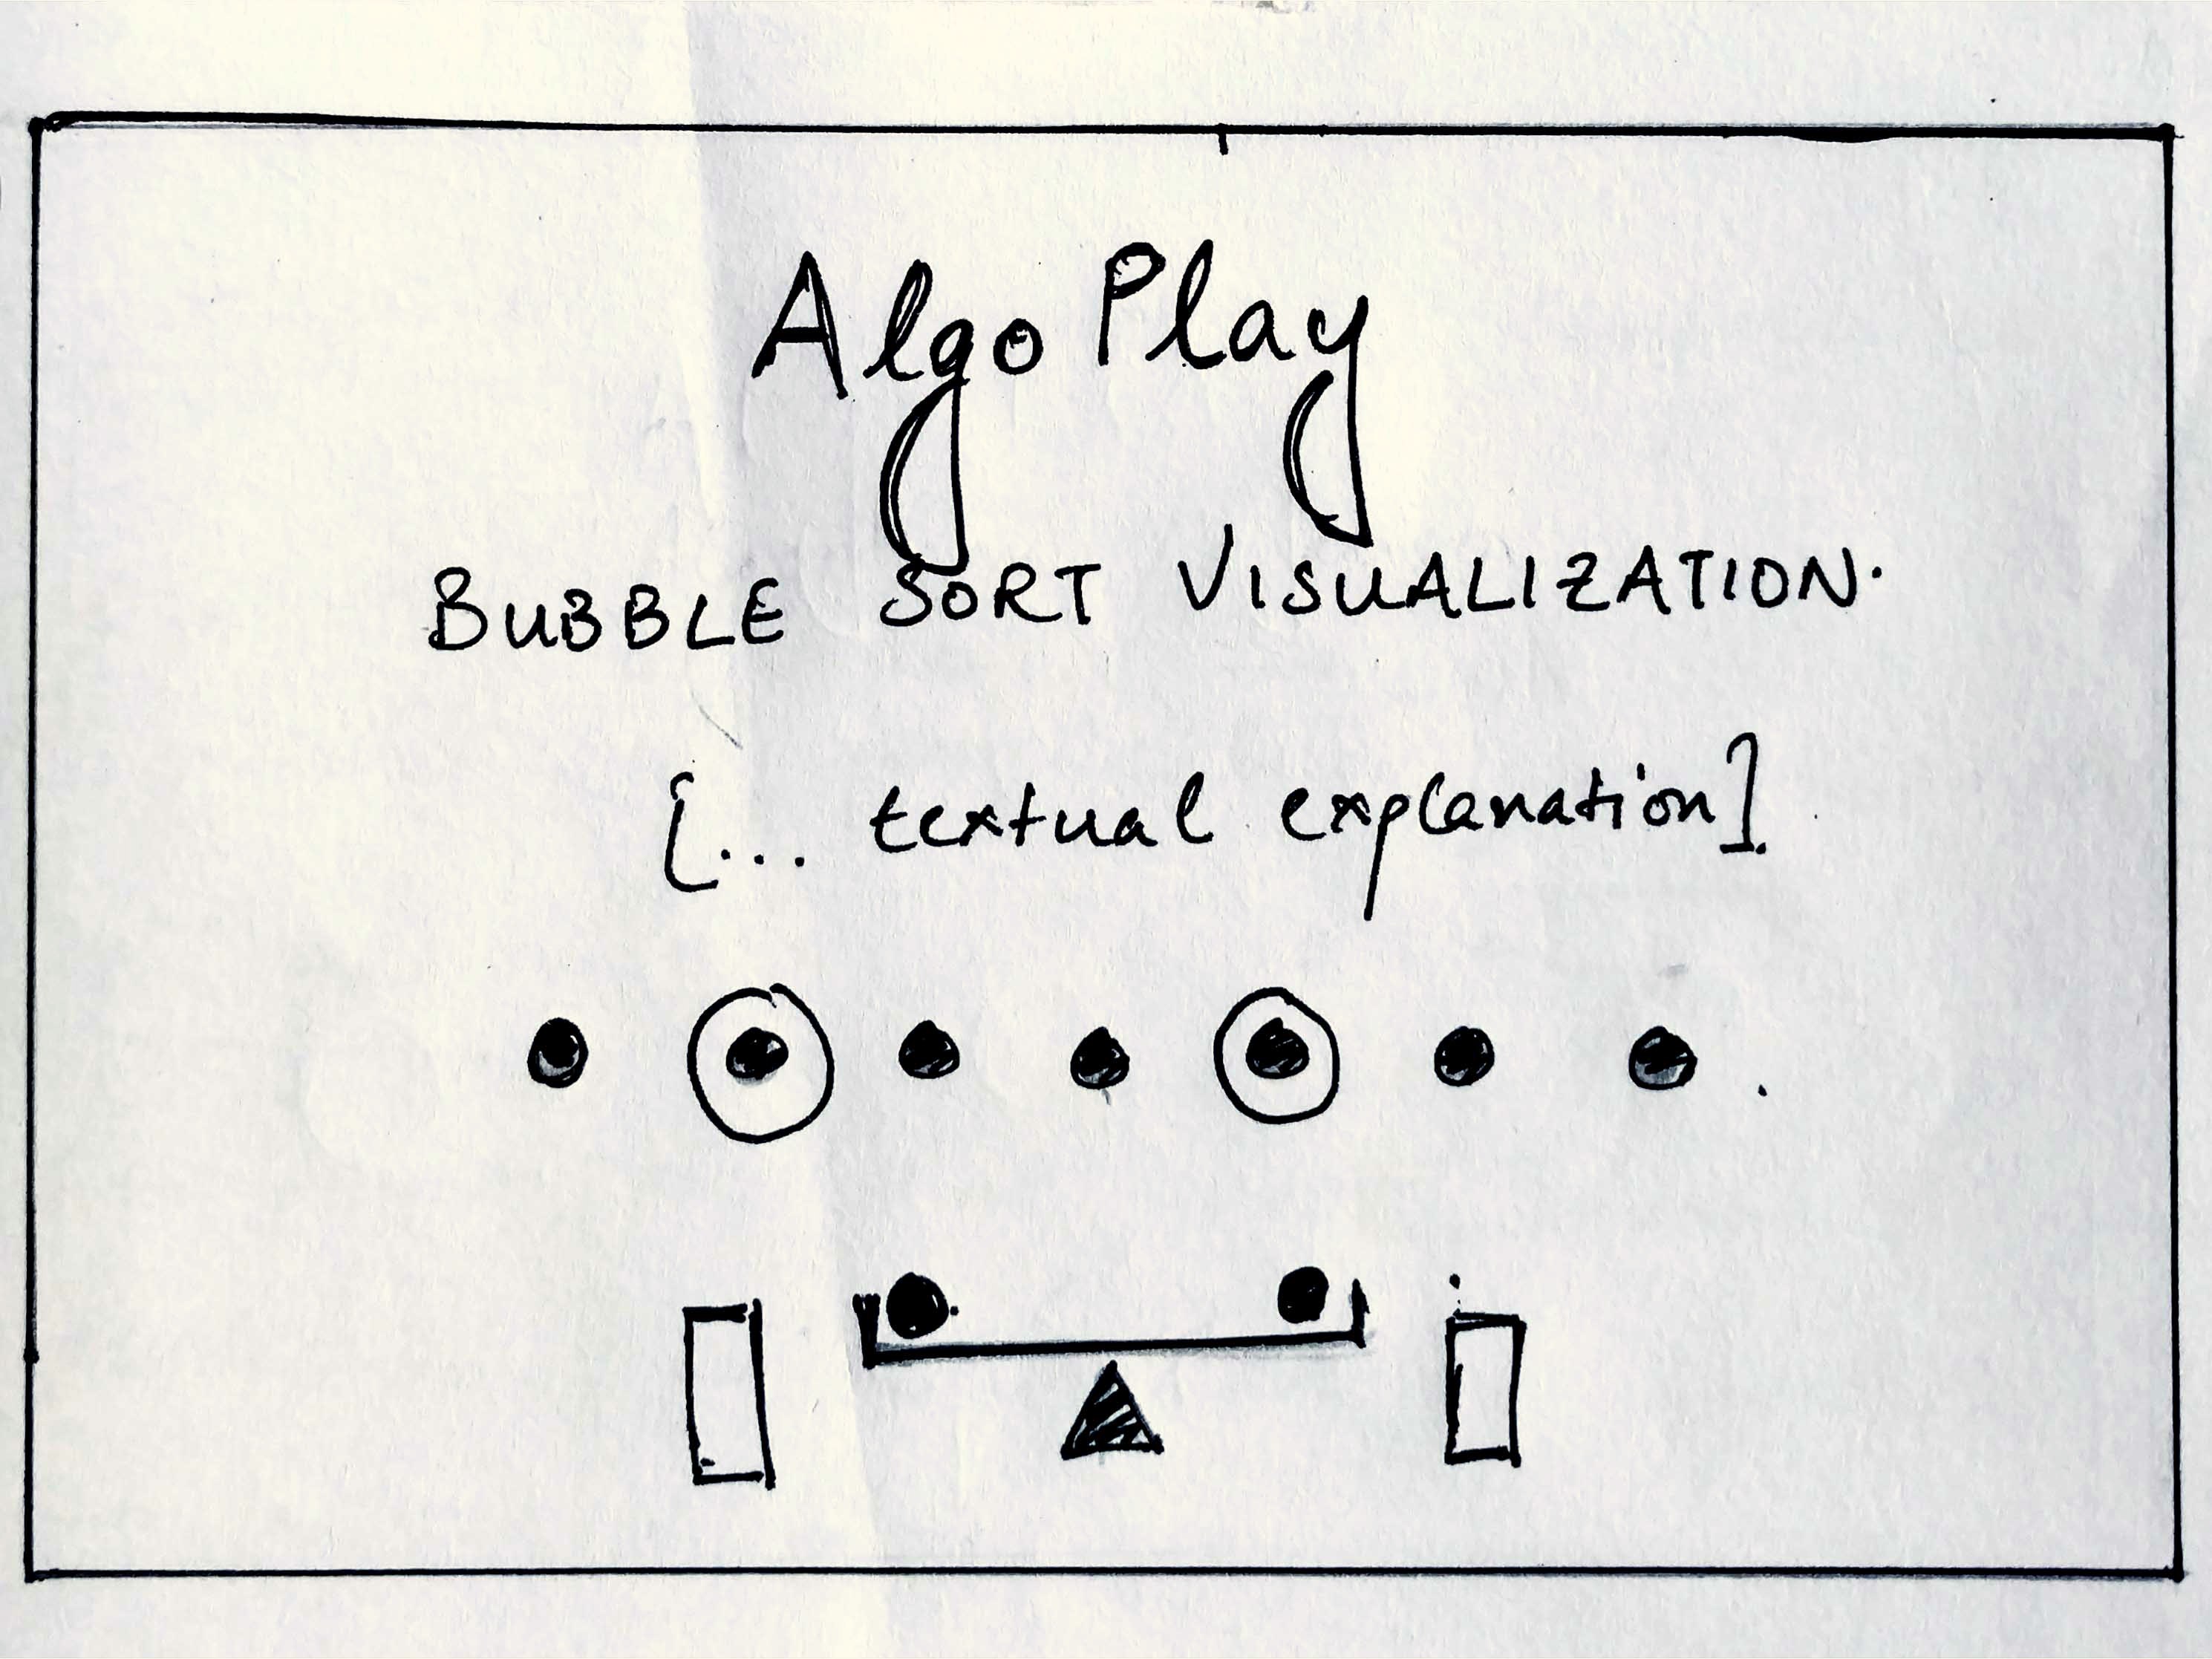 Algo Play
BUBBLE SORT VISUALIZATION.
[... textual explanation]